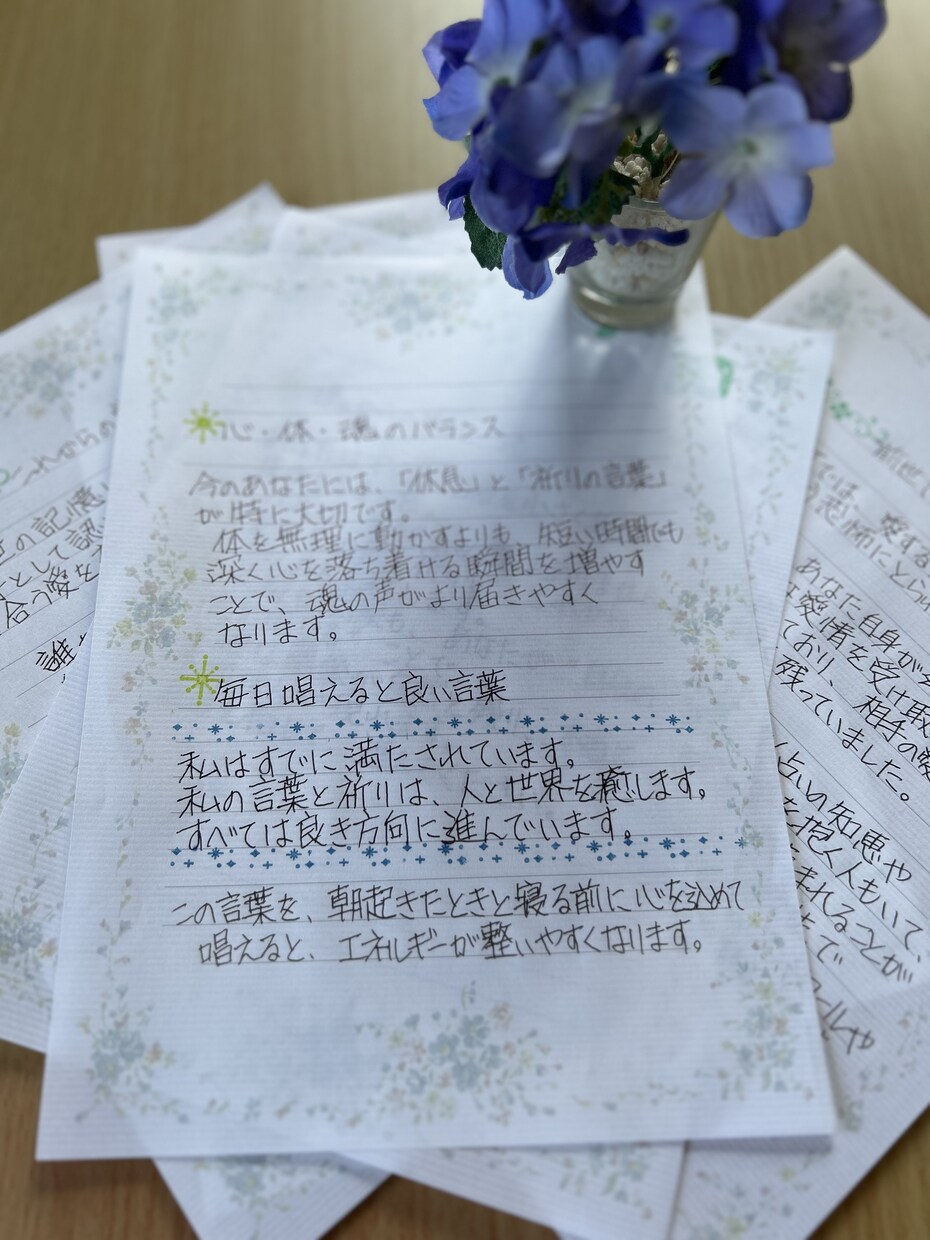 心・体・魂のバランス
今のあなたには、「休息」と「祈りの言葉」
が特に大切です。
体を無理に動かすよりも、短い時間でも
深く心を落ち着ける瞬間を増やす
ことで、魂の声がより届きやすく
なります。
毎日唱えると良い言葉
私はすでに満たされています。
私の言葉と祈りは、人と世界を癒します。
すべては良き方向に進んでいます。
この言葉を、朝起きたときと寝る前に心を込めて
唱えると、エネルギーが整いやすくなります。
これからの
の記憶
として認
合う愛を
誰
前世で
愛する
あなた自身が
愛情を受け取
ており、相手の愛
残っていました。
占いの知恵や
を抱く人もいて、
まれることが
で
ールや